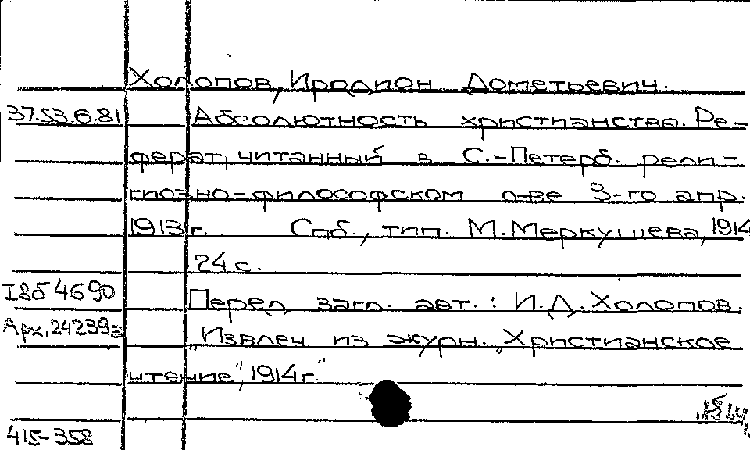 Холопов, Иродион Дометьевич.
37.53.6.81 Абсолютность христианства. Ре-
ферат, читанный в С.-Петерб. рели-
гиозно-философском о-ве 3-го апр.
1913 г. Спб., тип. М. Меркушева, 1914
24 с.
I8б4690 Перед загл. авт.: И.Д. Холопов.
Арх.24239а Извлеч из журн. „Христианское
чтение", 1914 г.
415-358